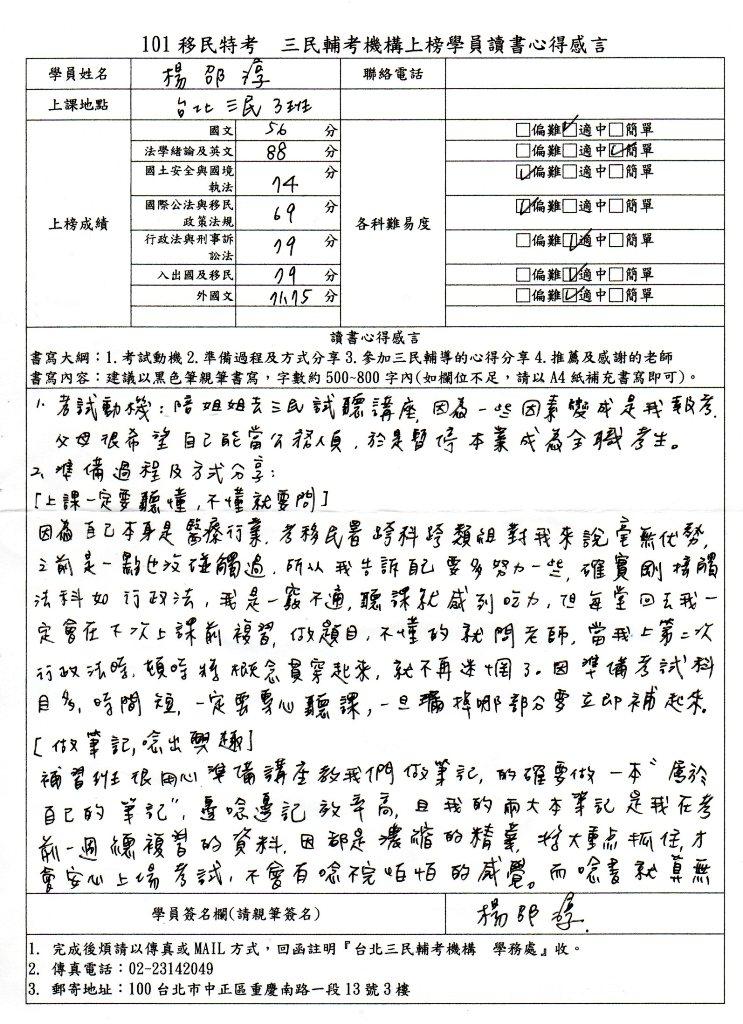 101 移民特考　三民輔考機構上榜學員讀書心得感言
學員姓名 楊邵淳 聯絡電話
上課地點 台北三民3班
上榜成績 各科難易度
國文 56 分 □偏難☑適中□簡單
法學緒論及英文 88 分 □偏難□適中☑簡單
國土安全與國境執法 74 分 ☑偏難□適中□簡單
國際公法與移民政策法規 69 分 ☑偏難□適中□簡單
行政法與刑事訴訟法 79 分 □偏難☑適中□簡單
入出國及移民 79 分 □偏難☑適中□簡單
外國文 71.75 分 □偏難☑適中□簡單
讀書心得感言
書寫大綱：1.考試動機 2.準備過程及方式分享 3.參加三民輔導的心得分享 4.推薦及感謝的老師
書寫內容：建議以黑色筆親筆書寫，字數約 500~800 字內(如欄位不足，請以 A4 紙補充書寫即可)。
1. 考試動機：陪姐姐去三民試聽講座，因為一些因素變成是我報考，
父母很希望自己能當公務人員，於是暫停本業成為全職考生。
2. 準備過程及方式分享：
[上課一定要聽懂，不懂就要問]
因為自己本身是醫療行業，考移民署跨科跨類組對我來說毫無優勢，
之前是一點也沒碰觸過，所以我告訴自己要多努力一些，確實剛接觸
法科如行政法，我是一竅不通，聽課就感到吃力，但每堂回去我一
定會在下次上課前複習，做題目，不懂的就問老師，當我上第二次
行政法時，頓時將概念貫穿起來，就不再迷惘了。因準備考試科
目多，時間短，一定要專心聽課，一旦漏掉哪部分要立即補起來。
[做筆記，唸出興趣]
補習班很用心準備講座教我們做筆記，的確要做一本"屬於
自己的筆記"，邊唸邊記效率高，且我的兩大本筆記是我在考
前一週總複習的資料，因都是濃縮的精華，將大重點抓住，才
會安心上場考試，不會有唸不完怕怕的感覺。而唸書就真無
學員簽名欄(請親筆簽名) 楊邵淳
1. 完成後煩請以傳真或 MAIL 方式，回函註明『台北三民輔考機構　學務處』收。
2. 傳真電話：02-23142049
3. 郵寄地址：100 台北市中正區重慶南路一段 13 號 3 樓